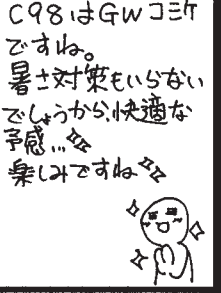 C98はGWコミケ
ですね。
暑さ対策もいらない
でしょうから、快適な
予感…
楽しみですね